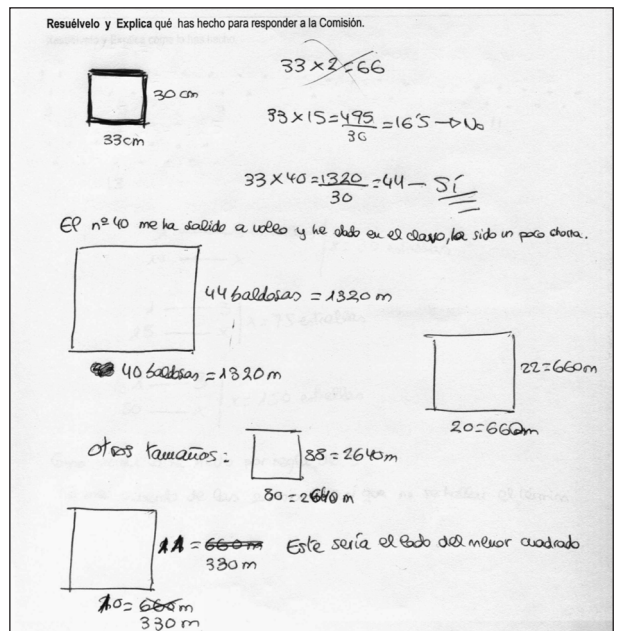 Resuélvelo y Explica qué has hecho para responder a la Comisión.
33 x 2 = 66
30 cm
33 x 15 = 495/30 = 16'5 → No
33cm
33 x 40 = 1320/30 = 44 — Sí
El nº 40 me ha salido a voleo y he dado en el clavo, ha sido un poco chorra.
44 baldosas = 1320 m
40 baldosas = 1320 m
22 = 660m
20 = 660m
otros tamaños:
88 = 2640m
80 = 2640 m
11 = 660 m
330 m
Este sería el lado del menor cuadrado
10 = 660 m
330 m